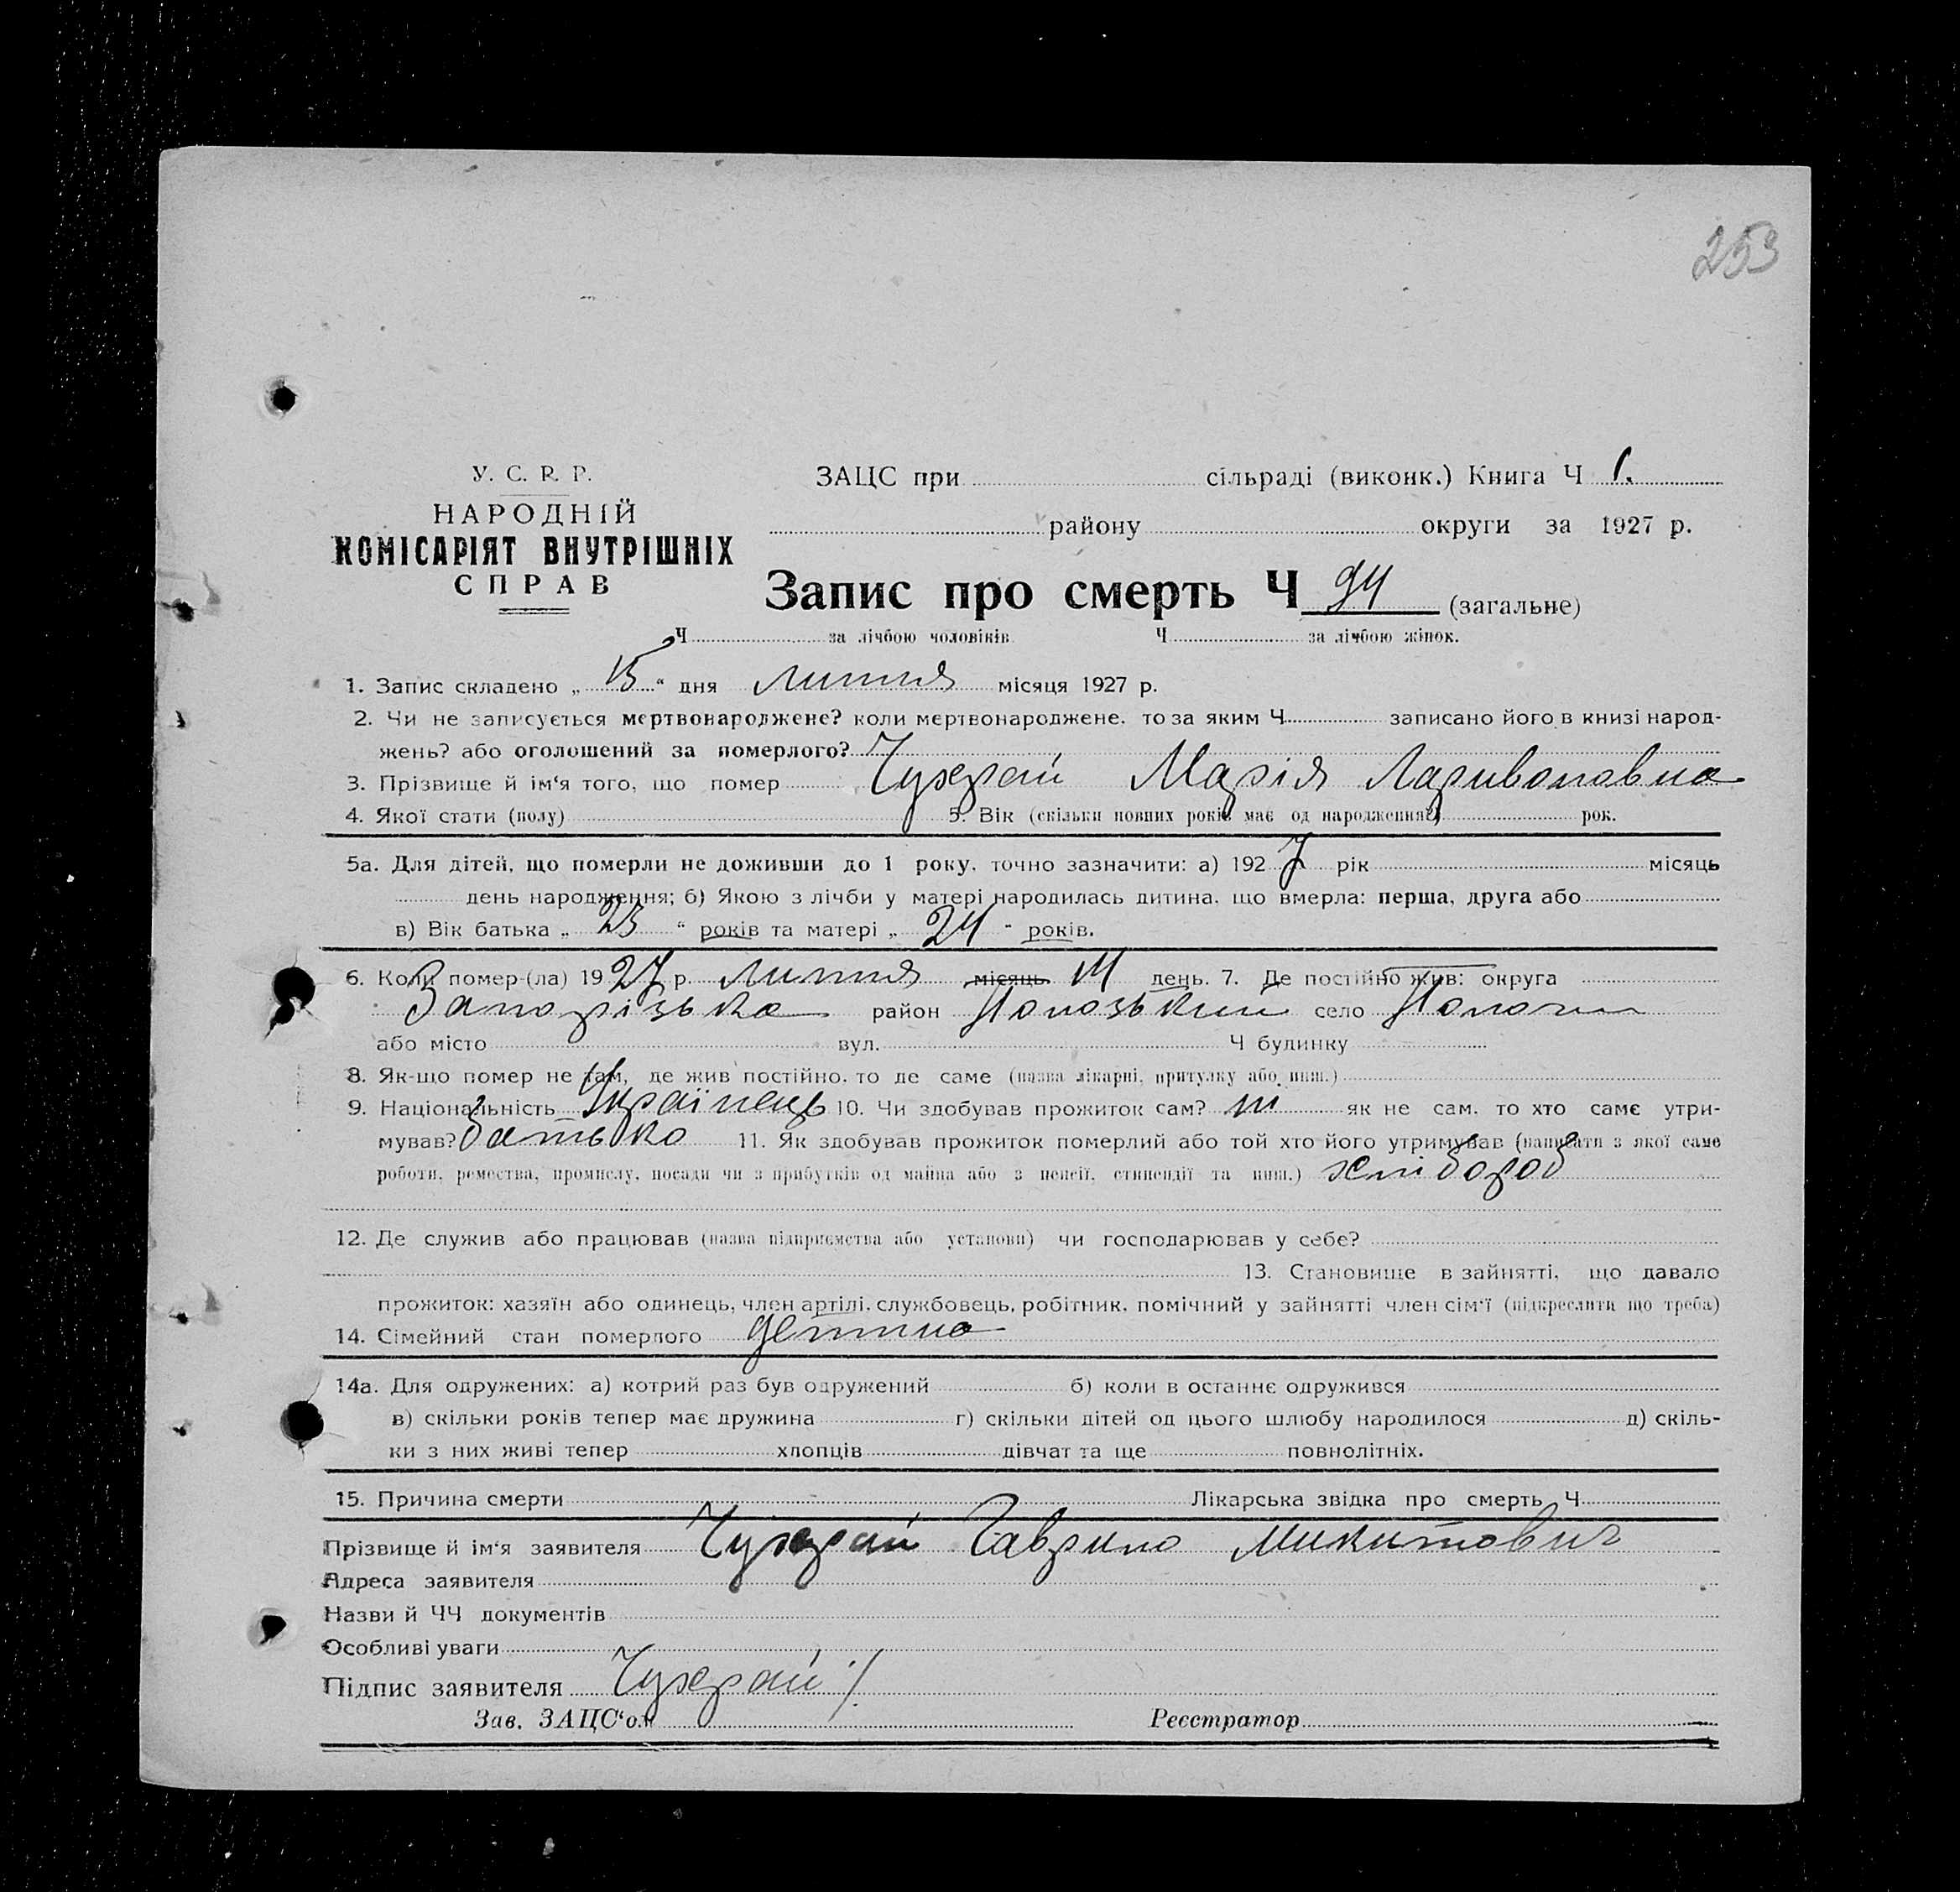 253
У. С. Р. Р.
НАРОДНІЙ
КОМІСАРІЯТ ВНУТРІШНІХ
СПРАВ
ЗАЦС при сільраді (виконк.) Книга Ч 1.
району округи за 1927 р.
Запис про смерть Ч 94 (загальне)
Ч за лічбою чоловіків Ч за лічбою жінок.
1. Запис складено „ 15 “ дня Липня місяця 1927 р.
2. Чи не записується мертвонароджене? коли мертвонароджене. то за яким Ч записано його в книзі народ-
жень? або оголошений за померлого?
3. Прізвище й ім‘я того, що помер Чухрай Марія
4. Якої стати (полу) 5. Вік (скільки повних років має од народження) рок.
5а. Для дітей, що померли не доживши до 1 року, точно зазначити: а) 1927 рік місяць
день народження; б) Якою з лічби у матері народилась дитина, що вмерла: перша, друга або
в) Вік батька „ 23 “ років та матері „ 24 “ років.
6. Коли помер-(ла) 1927 р. Липня місяць 14 день. 7. Де постійно жив: округа
Запорізька район село
або місто вул. Ч будинку
8. Як-що помер не там, де жив постійно. то де саме (назва лікарні, притулку або инш.)
9. Національність Українець 10. Чи здобував прожиток сам? ні як не сам. то хто саме утри-
мував? батько 11. Як здобував прожиток померлий або той хто його утримував (написати з якої саме
роботи, ремества, промислу, посади чи з прибутків од майна або з пенсії, стипендії та инш.) хлібороб
12. Де служив або працював (назва підприємства або установи) чи господарював у себе?
13. Становище в зайнятті, що давало
прожиток: хазяїн або одинець, член артілі, службовець, робітник. помічний у зайнятті член сім‘ї (підкреслити що треба)
14. Сімейний стан померлого детина
14а. Для одружених: а) котрий раз був одружений б) коли в останнє одружився
в) скільки років тепер має дружина г) скільки дітей од цього шлюбу народилося д) скіль-
ки з них живі тепер хлопців дівчат та ще повнолітніх.
15. Причина смерти Лікарська звідка про смерть Ч
Прізвище й ім‘я заявителя Чухрай Гаврило Микитович
Адреса заявителя
Назви й ЧЧ документів
Особливі уваги
Підпис заявителя Чухрай
Зав. ЗАЦС‘ом Реєстратор